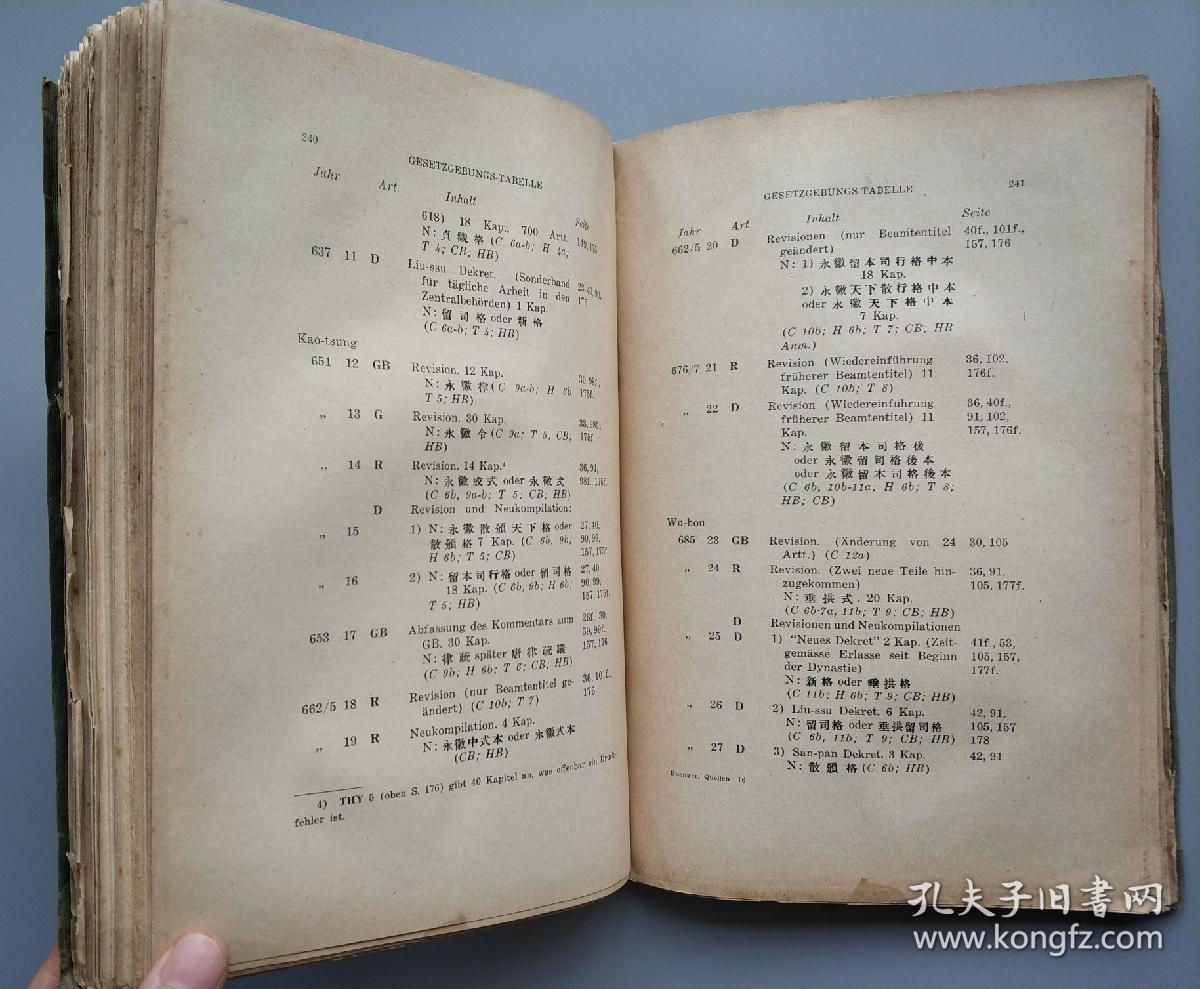 240
GESETZGEBUNGS-TABELLE
Jahr Art Inhalt Seite
618) 18 Kap., 700 Artt.
N: 貞觀格 (C 6a-b; H 4a;
T 4; CB; HB)
637 11 D Liu-ssu Dekret. (Sonderband
für tägliche Arbeit in den
Zentralbehörden) 1 Kap.
N: 留司格 oder 新格
(C 6a-b; T 4; HB)
Kao-tsung
651 12 GB Revision. 12 Kap.
N: 永徽律 (C 9a-b; H 6b
T 5; HB)
„ 13 G Revision. 30 Kap.
N: 永徽令 (C 9a; T 5, CB;
HB)
„ 14 R Revision. 14 Kap.⁴ 36,91,
N: 永徽成式 oder 永徽式 98f., 175f.
(C 6b, 9a-b; T 5; CB; HB)
D Revision und Neukompilation:
„ 15 1) N: 永徽散頒天下格 oder 27,40,
散頒格 7 Kap. (C 6b, 9b; 90,99,
H 6b; T 5; CB) 157,175f.
„ 16 2) N: 留本司行格 oder 留司格 27,40,
18 Kap. (C 6b, 9b; H 6b; 90,99,
T 5; HB) 157,175f.
653 17 GB Abfassung des Kommentars zum
GB. 30 Kap.
N: 律疏 später 唐律疏議 157,176
(C 9b; H 6b; T 6; CB; HB)
662/5 18 R Revision (nur Beamtentitel ge- 36, 101f.,
ändert) (C 10b; T 7) 175
„ 19 R Neukompilation. 4 Kap.
N: 永徽中式本 oder 永徽式本
(CB; HB)
4) THY 5 (oben S. 176) gibt 40 Kapitel an, was offenbar ein Druck-
fehler ist.
GESETZGEBUNGS-TABELLE 241
Jahr Art Inhalt Seite
662/5 20 D Revisionen (nur Beamtentitel 40f., 101f.,
geändert) 157, 176
N: 1) 永徽留本司行格中本
18 Kap.
2) 永徽天下散行格中本
oder 永徽天下格中本
7 Kap.
(C 10b; H 6b; T 7; CB; HB
Anm.)
676/7 21 R Revision (Wiedereinführung 36, 102,
früherer Beamtentitel) 11 176f.
Kap. (C 10b; T 8)
„ 22 D Revision (Wiedereinführung 36, 40f.,
früherer Beamtentitel) 11 91, 102,
Kap. 157, 176f.
N: 永徽留本司格後
oder 永徽留司格後本
oder 永徽留本司格後本
(C 6b, 10b-11a; H 6b; T 8;
HB; CB)
Wu-hou
685 23 GB Revision. (Änderung von 24 30, 105
Artt.) (C 12a)
„ 24 R Revision. (Zwei neue Teile hin- 36, 91,
zugekommen) 105, 177f.
N: 垂拱式. 20 Kap.
(C 6b-7a, 11b; T 9; CB; HB)
D Revisionen und Neukompilationen
„ 25 D 1) "Neues Dekret" 2 Kap. (Zeit- 41f., 53,
gemässe Erlasse seit Beginn 105, 157,
der Dynastie) 177f.
N: 新格 oder 垂拱格
(C 11b; H 6b; T 9; CB; HB)
„ 26 D 2) Liu-ssu Dekret. 6 Kap. 42, 91,
N: 留司格 oder 垂拱留司格 105, 157
(C 6b, 11b; T 9; CB; HB) 178
„ 27 D 3) San-pan Dekret. 3 Kap. 42, 91
N: 散頒格 (C 6b; HB)
Buenger, Quellen 16
孔夫子旧书网
www.kongfz.com